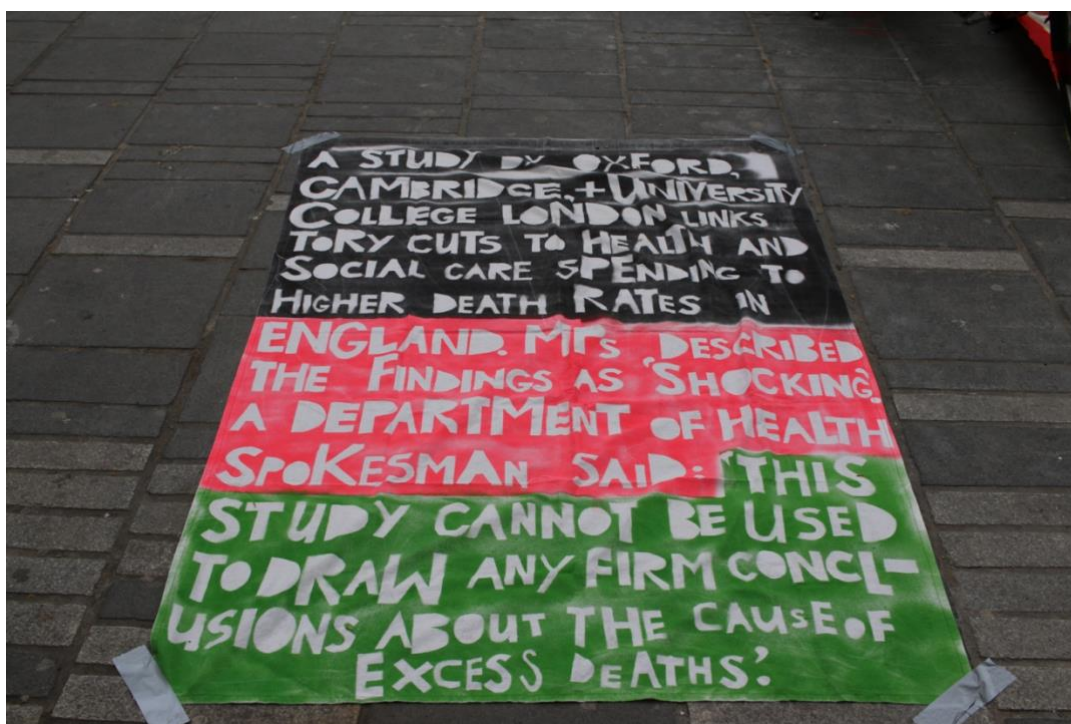 A STUDY BY OXFORD,
CAMBRIDGE, + UNIVERSITY
COLLEGE LONDON LINKS
TORY CUTS TO HEALTH AND
SOCIAL CARE SPENDING TO
HIGHER DEATH RATES IN
ENGLAND. MP'S DESCRIBED
THE FINDINGS AS 'SHOCKING'.
A DEPARTMENT OF HEALTH
SPOKESMAN SAID: "THIS
STUDY CANNOT BE USED
TO DRAW ANY FIRM CONCL-
USIONS ABOUT THE CAUSE OF
EXCESS DEATHS."